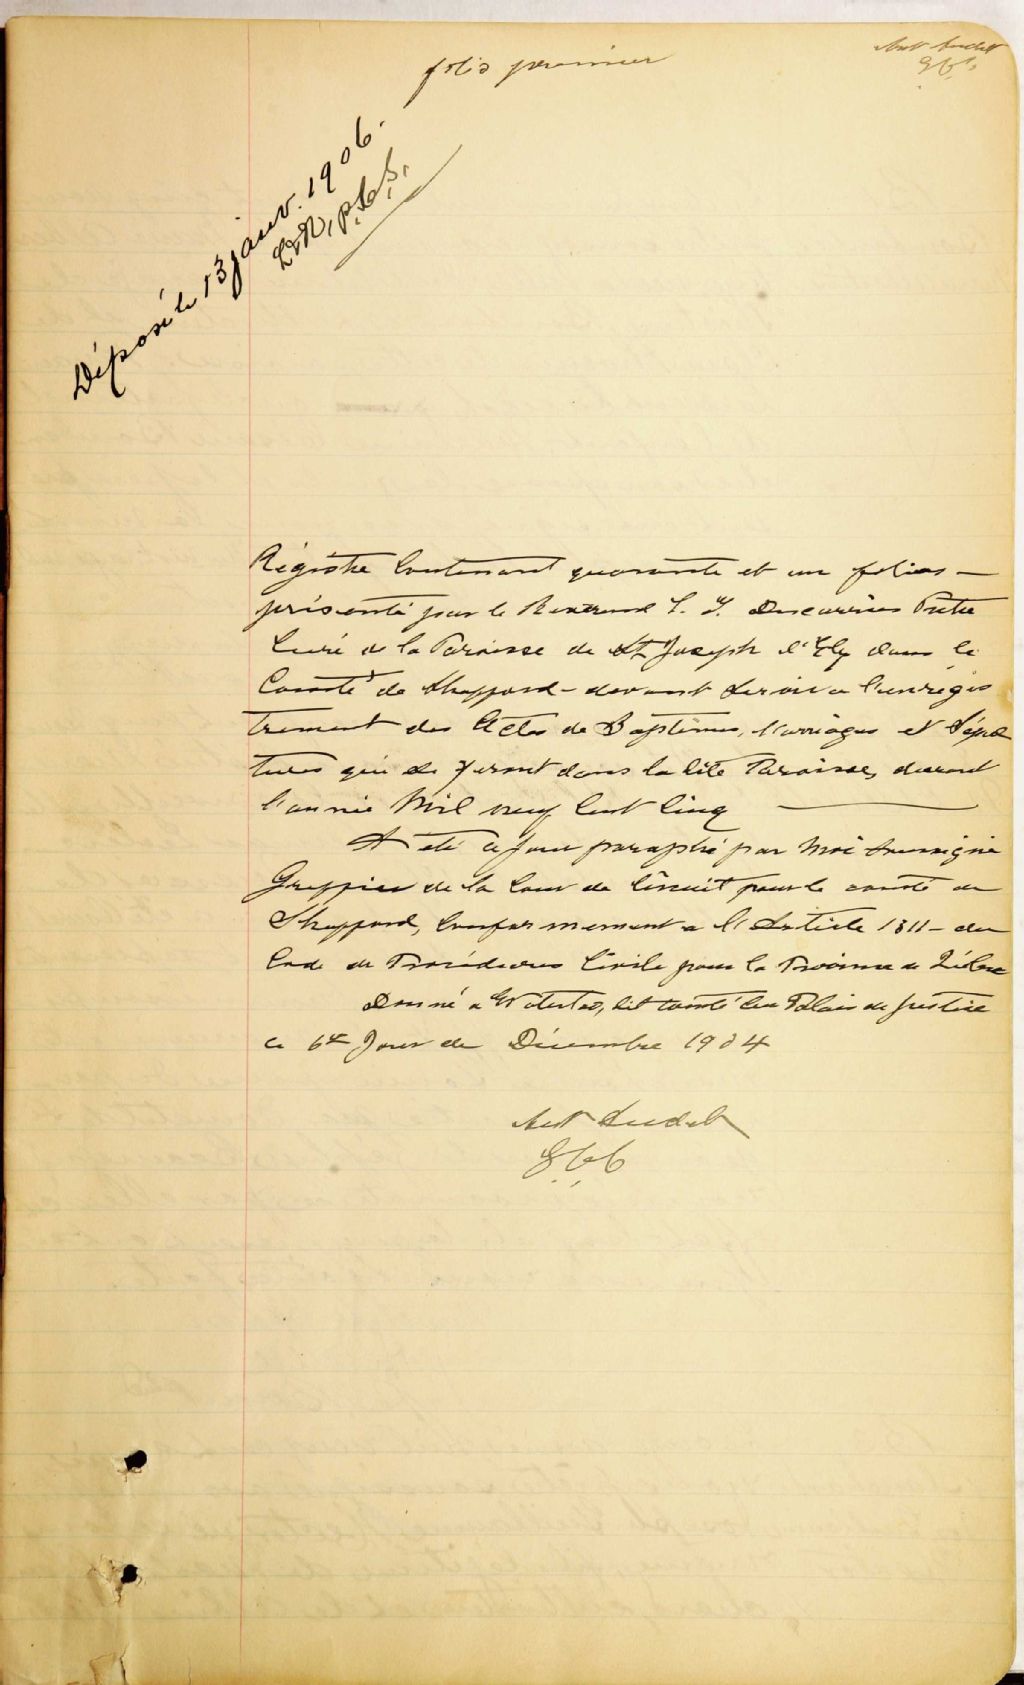 folio premier
Ant Audet
G.C.C.
Déposé le 13 janv. 1906.
L.R., p.c.s.
Régistre Contenant quarante et un folios —
présenté par le Reverend Descarries Prêtre
Curé de la Paroisse de St Joseph d'Ely dans le
Comté de Sheppord - devant Servir a l'enrégis
trement des Actes de Baptêmes, Marriages et Sépul
tures qui se feront dans la dite Paroisse, durant
l'année Mil neuf Cent Cinq ———
A été ce jour paraphé par Moi Soussigné
Greffier de la Cour de Circuit pour le comté de
Sheppord, Conformement a l'Article 1311 - du
Code de Procédures Civile pour la Province de Québec
Donné a Waterloo, dit comté Palais de Justice
ce 6e Jour de Décembre 1904
Ant Audet
G.C.C